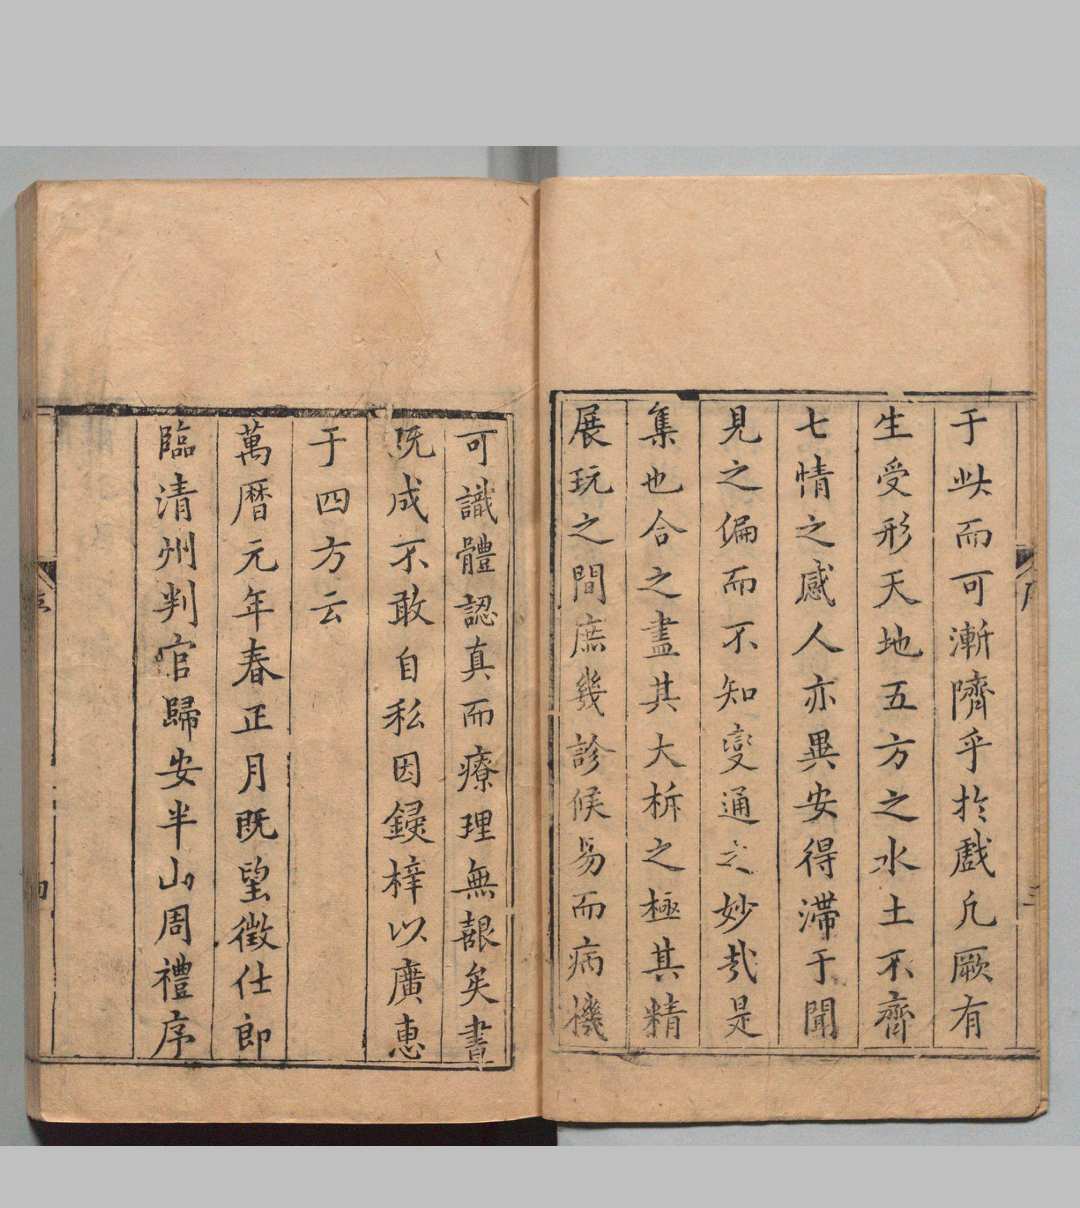 于此而可漸隮乎於戲凡厥有
生受形天地五方之水土不齊
七情之感人亦異安得滯于聞
見之偏而不知變通之妙哉是
集也合之盡其大析之極其精
展玩之間庶幾診候易而病機
可識體認真而療理無艱矣書
既成不敢自私因鋟梓以廣惠
于四方云
萬曆元年春正月既望徵仕郎
臨清州判官歸安半山周禮序
序
三
四